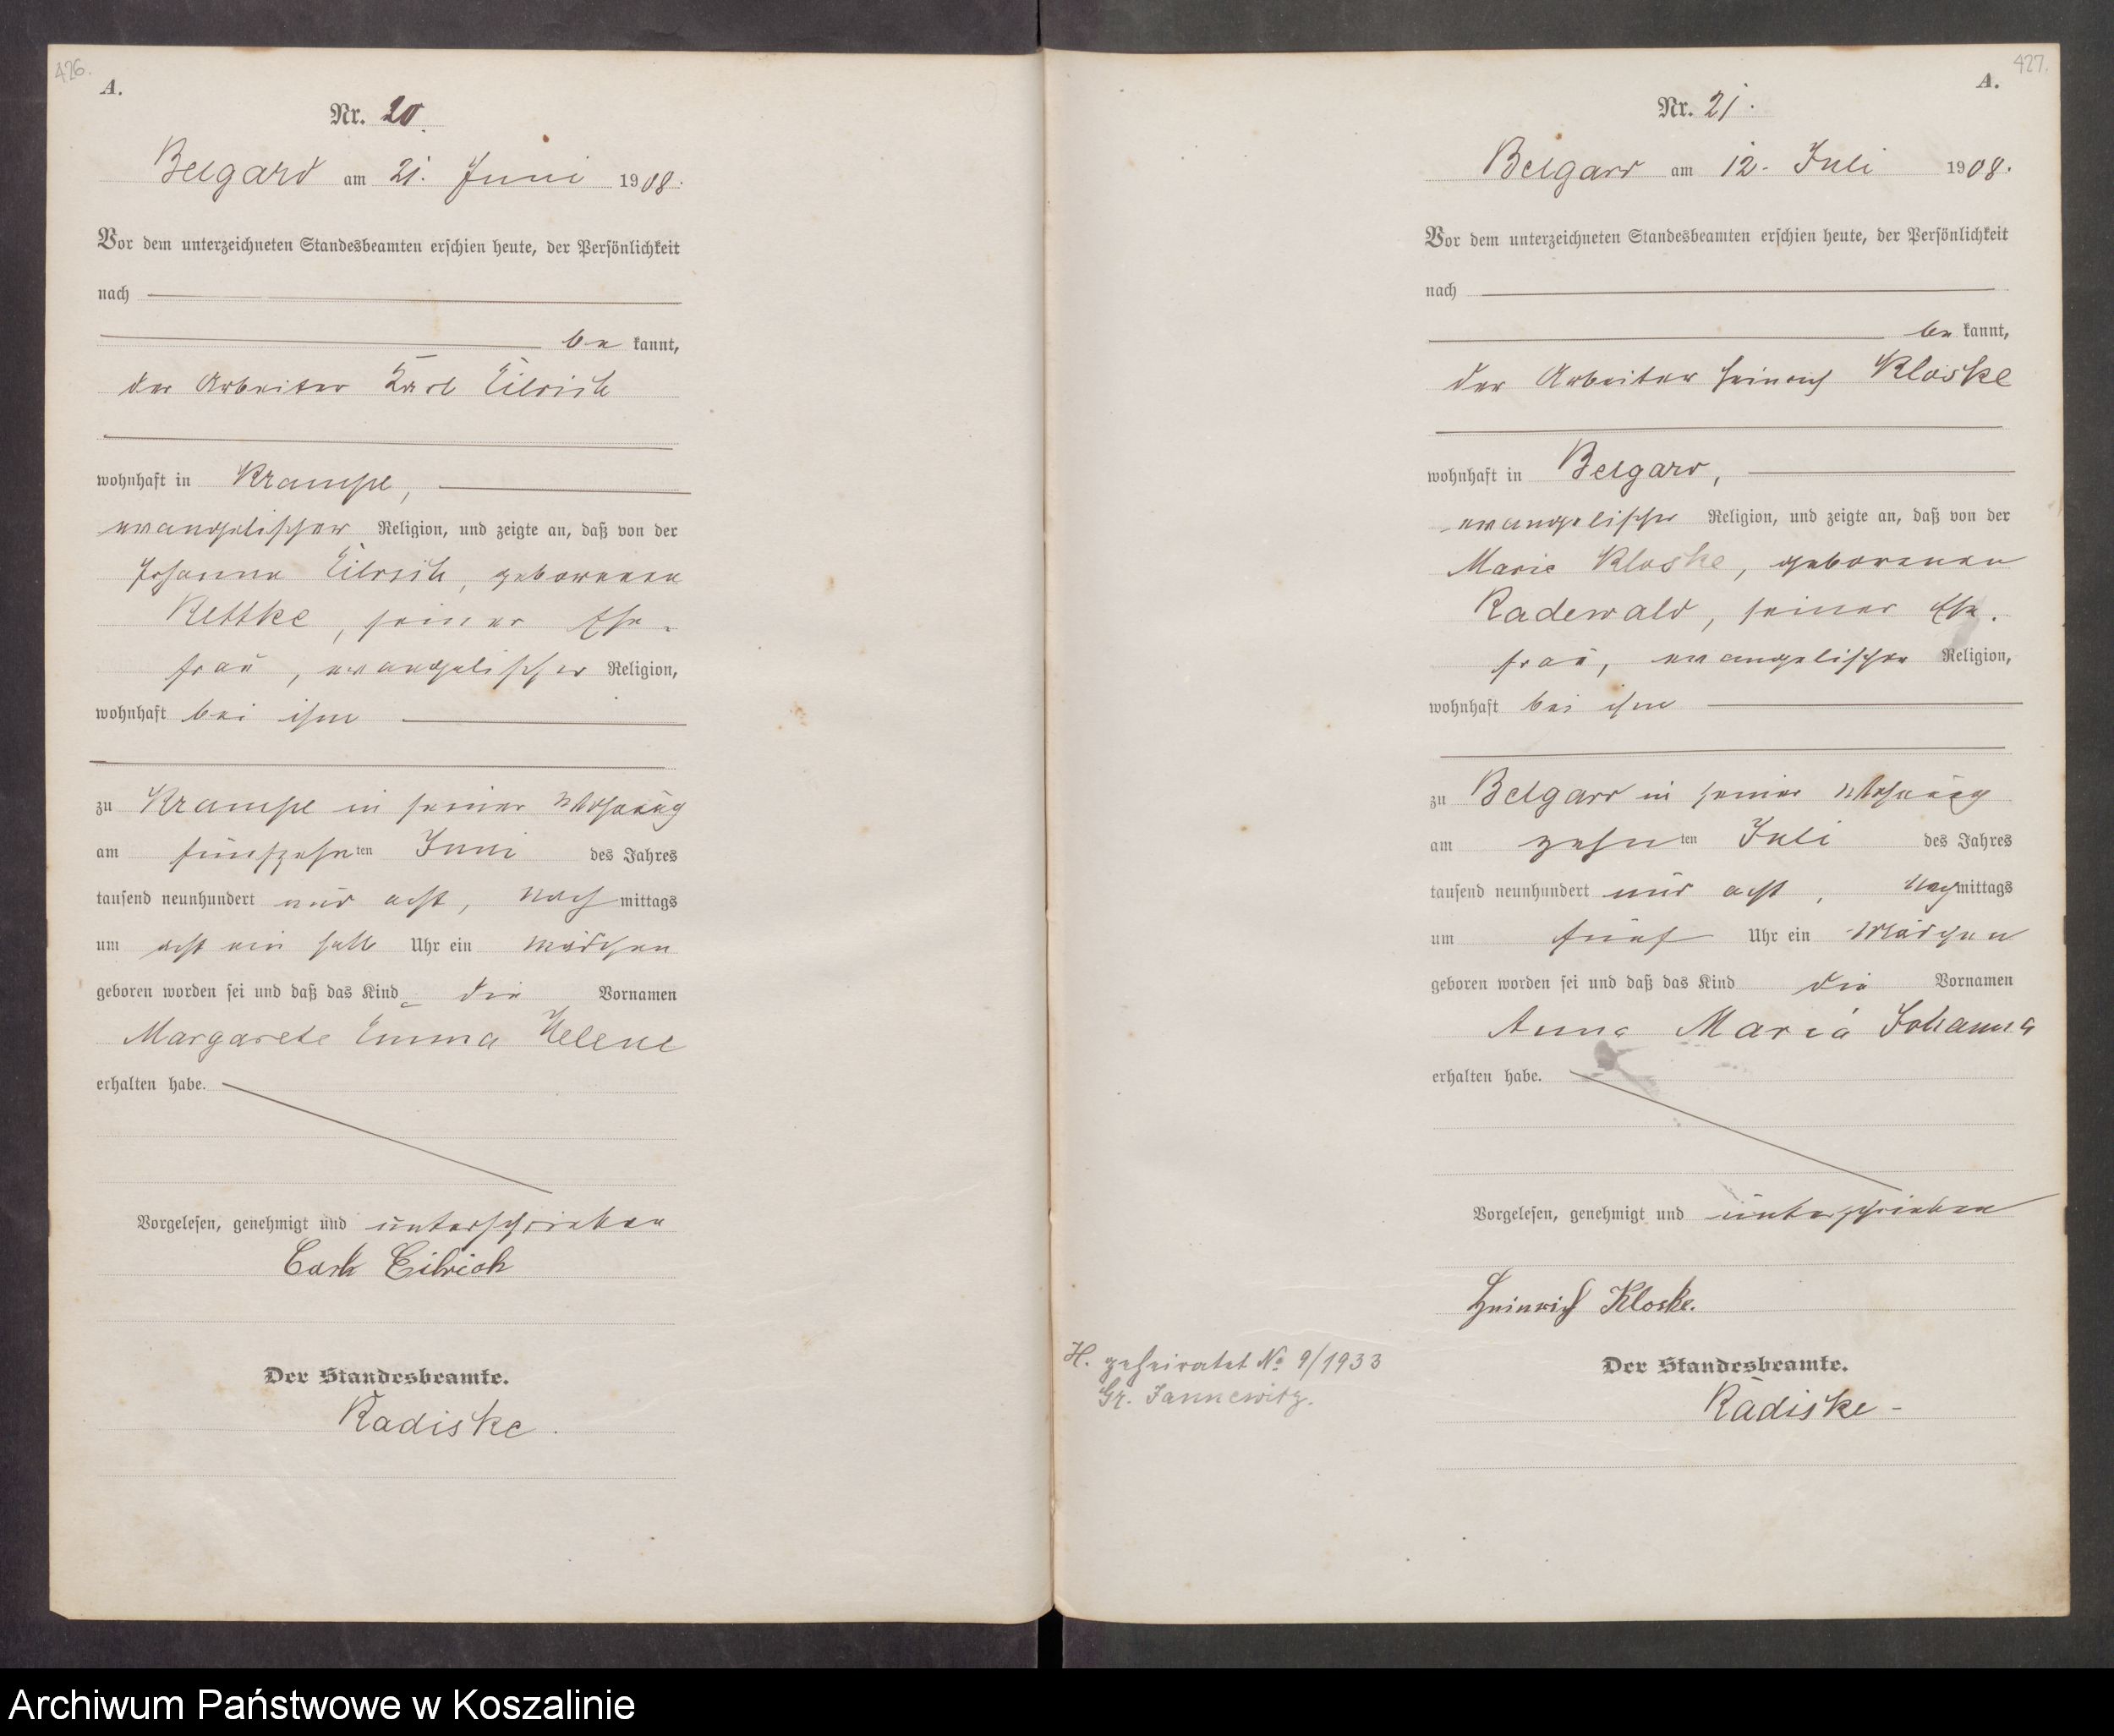 426.
A.
Nr. 20.
Belgard am 21. Juni 1908.
Vor dem unterzeichneten Standesbeamten erschien heute, der Persönlichkeit
nach
be kannt,
der Arbeiter Karl Eilrich
wohnhaft in Krampe,
evangelischer Religion, und zeigte an, daß von der
Johanna Eilrich, geborenen
Rettke, seiner Ehe-
frau, evangelischer Religion,
wohnhaft bei ihm
zu Krampe in seiner Wohnung
am fünfzehnten Juni des Jahres
tausend neunhundert und acht, nachmittags
um acht ein halb Uhr ein Mädchen
geboren worden sei und daß das Kind die Vornamen
Margarete Emma Helene
erhalten habe.
Vorgelesen, genehmigt und unterschrieben
Carl Eilrich
Der Standesbeamte.
Radiske.
427.
A.
Nr. 21.
Belgard am 12. Juli 1908.
Vor dem unterzeichneten Standesbeamten erschien heute, der Persönlichkeit
nach
be kannt,
der Arbeiter Heinrich Kloske
wohnhaft in Belgard,
evangelischer Religion, und zeigte an, daß von der
Marie Kloske, geborenen
Radewald, seiner Ehe-
frau, evangelischer Religion,
wohnhaft bei ihm
zu Belgard in seiner Wohnung
am zehnten Juli des Jahres
tausend neunhundert und acht, Nachmittags
um fünf Uhr ein Mädchen
geboren worden sei und daß das Kind die Vornamen
Anna Maria Johanna
erhalten habe.
Vorgelesen, genehmigt und unterschrieben
Heinrich Kloske.
H. geheiratet No 9/1933
Gr. Jannewitz.
Der Standesbeamte.
Radiske
Archiwum Państwowe w Koszalinie